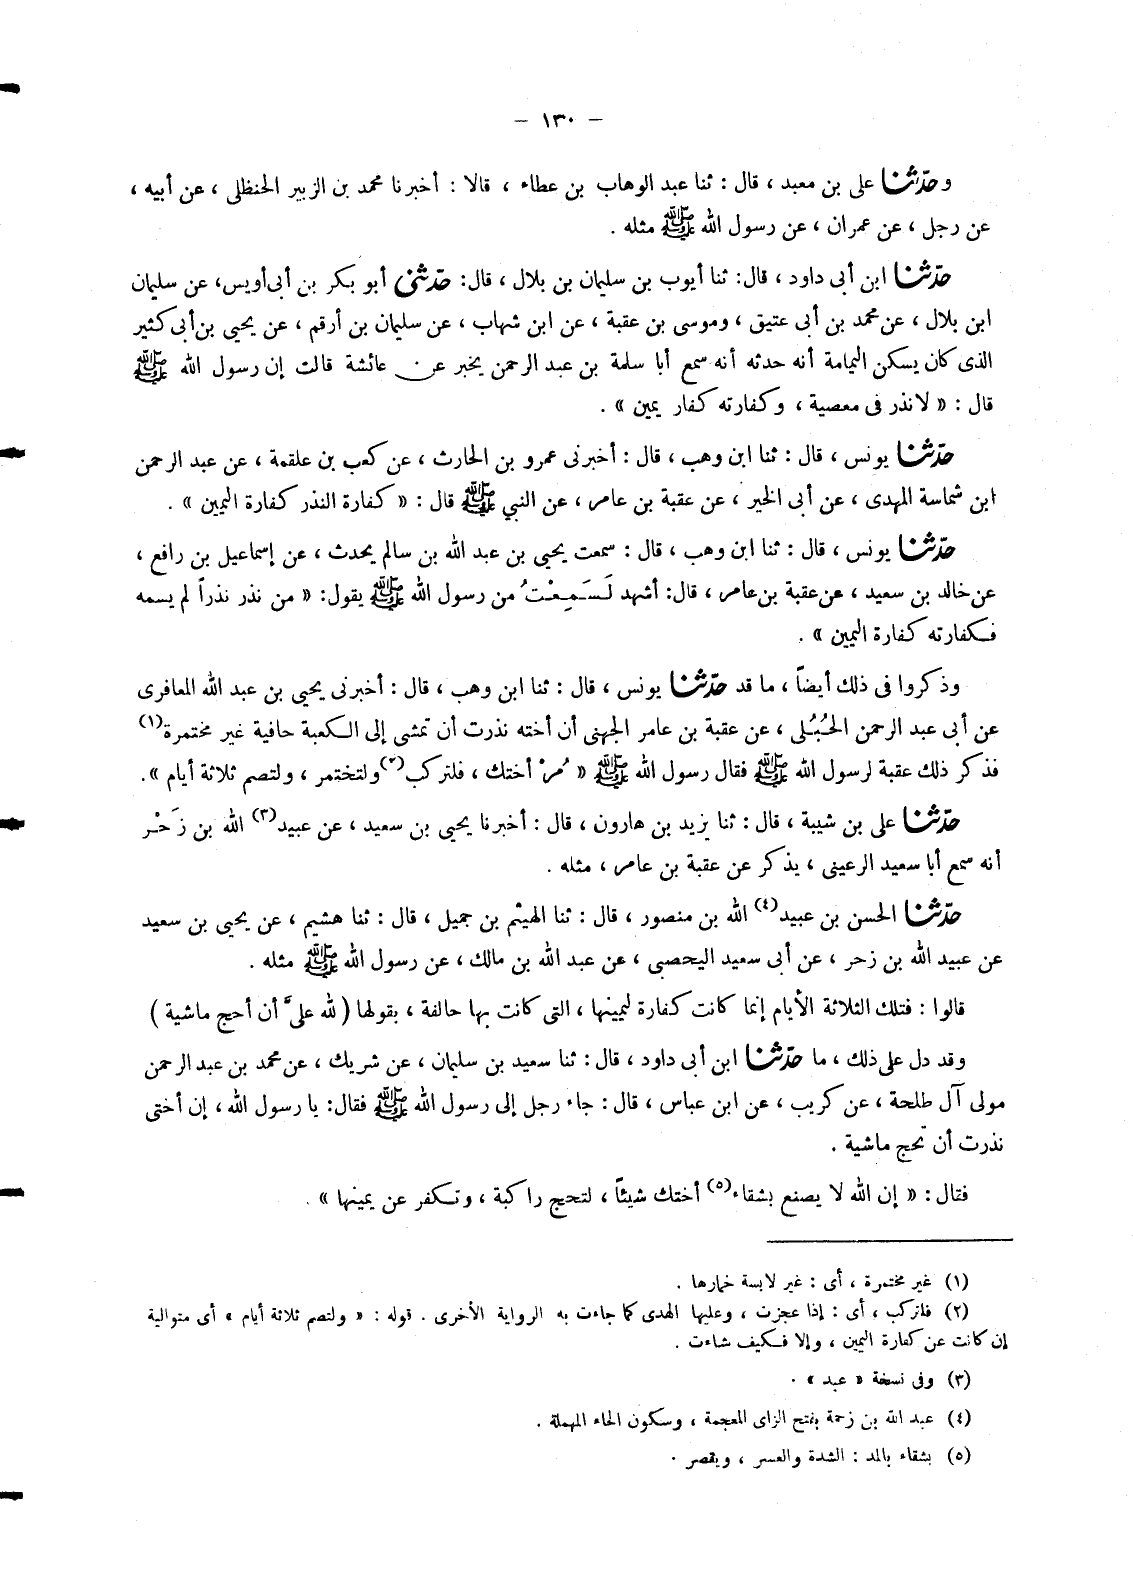 – ١٣٠ –
و حدّثنا على بن معبد ، قال : ثنا عبد الوهاب بن عطاء ، قالا : أخبرنا محمد بن الزبير الحنظلى ، عن أبيه ،
عن رجل ، عن عمران ، عن رسول الله ﷺ مثله .
حدّثنا ابن أبى داود ، قال: ثنا أيوب بن سليمان بن بلال ، قال: حدّثنى أبو بكر بن أبى أويس، عن سليمان
ابن بلال ، عن محمد بن أبى عتيق ، وموسى بن عقبة ، عن ابن شهاب ، عن سليمان بن أرقم ، عن يحيى بن أبى كثير
الذى كان يسكن اليمامة أنه حدثه أنه سمع أبا سلمة بن عبد الرحمن يخبر عن عائشة قالت إن رسول الله ﷺ
قال : « لا نذر فى معصية ، وكفارته كفار يمين » .
حدّثنا يونس ، قال : ثنا ابن وهب ، قال : أخبرنى عمرو بن الحارث ، عن كعب بن علقمة ، عن عبد الرحمن
ابن شماسة المهدى ، عن أبى الخير ، عن عقبة بن عامر ، عن النبي ﷺ قال : « كفارة النذر كفارة اليمين » .
حدّثنا يونس ، قال : ثنا ابن وهب ، قال : سمعت يحيى بن عبد الله بن سالم يحدث ، عن إسماعيل بن رافع ،
عن خالد بن سعيد ، عن عقبة بن عامر ، قال: أشهد لَسَمِعْتُ من رسول الله ﷺ يقول: « من نذر نذراً لم يسمه
فكفارته كفارة اليمين » .
وذكروا فى ذلك أيضاً ، ما قد حدّثنا يونس ، قال : ثنا ابن وهب ، قال : أخبرنى يحيى بن عبد الله المعافرى
عن أبى عبد الرحمن الحُبُلى ، عن عقبة بن عامر الجهنى أن أخته نذرت أن تمشى إلى الكعبة حافية غير مختمرة(١)
فذكر ذلك عقبة لرسول الله ﷺ فقال رسول الله ﷺ « مُرْ أختك ، فلتركب(٢) ولتختمر ، ولتصم ثلاثة أيام ».
حدّثنا على بن شيبة ، قال : ثنا يزيد بن هارون ، قال : أخبرنا يحيى بن سعيد ، عن عبيد(٣) الله بن زَحْر
أنه سمع أبا سعيد الرعينى ، يذكر عن عقبة بن عامر ، مثله .
حدّثنا الحسن بن عبيد(٤) الله بن منصور ، قال : ثنا الهيثم بن جميل ، قال : ثنا هشيم ، عن يحيى بن سعيد
عن عبيد الله بن زحر ، عن أبى سعيد اليحصبى ، عن عبد الله بن مالك ، عن رسول الله ﷺ مثله .
قالوا : فتلك الثلاثة الأيام إنما كانت كفارة ليمينها ، التى كانت بها حالفة ، بقولها ( لله علىَّ أن أحج ماشية )
وقد دل على ذلك ، ما حدّثنا ابن أبى داود ، قال: ثنا سعيد بن سليمان ، عن شريك ، عن محمد بن عبد الرحمن
مولى آل طلحة ، عن كريب ، عن ابن عباس ، قال : جاء رجل إلى رسول الله ﷺ فقال: يا رسول الله ، إن أختى
نذرت أن تحج ماشية .
فقال : « إن الله لا يصنع بشقاء(٥) أختك شيئاً ، لتحج راكبة ، وتكفر عن يمينها » .
(١) غير مختمرة ، أى : غير لابسة خمارها .
(٢) فلتركب ، أى : إذا عجزت ، وعليها الهدى كما جاءت به الرواية الأخرى . قوله : « ولتصم ثلاثة أيام » أى متوالية
إن كانت عن كفارة اليمين ، وإلا فكيف شاءت .
(٣) وفى نسخة « عبد » .
(٤) عبد الله بن زحمة بفتح الزاى المعجمة ، وسكون الحاء المهملة .
(٥) بشقاء بالمد : الشدة والعسر ، ويقصر .